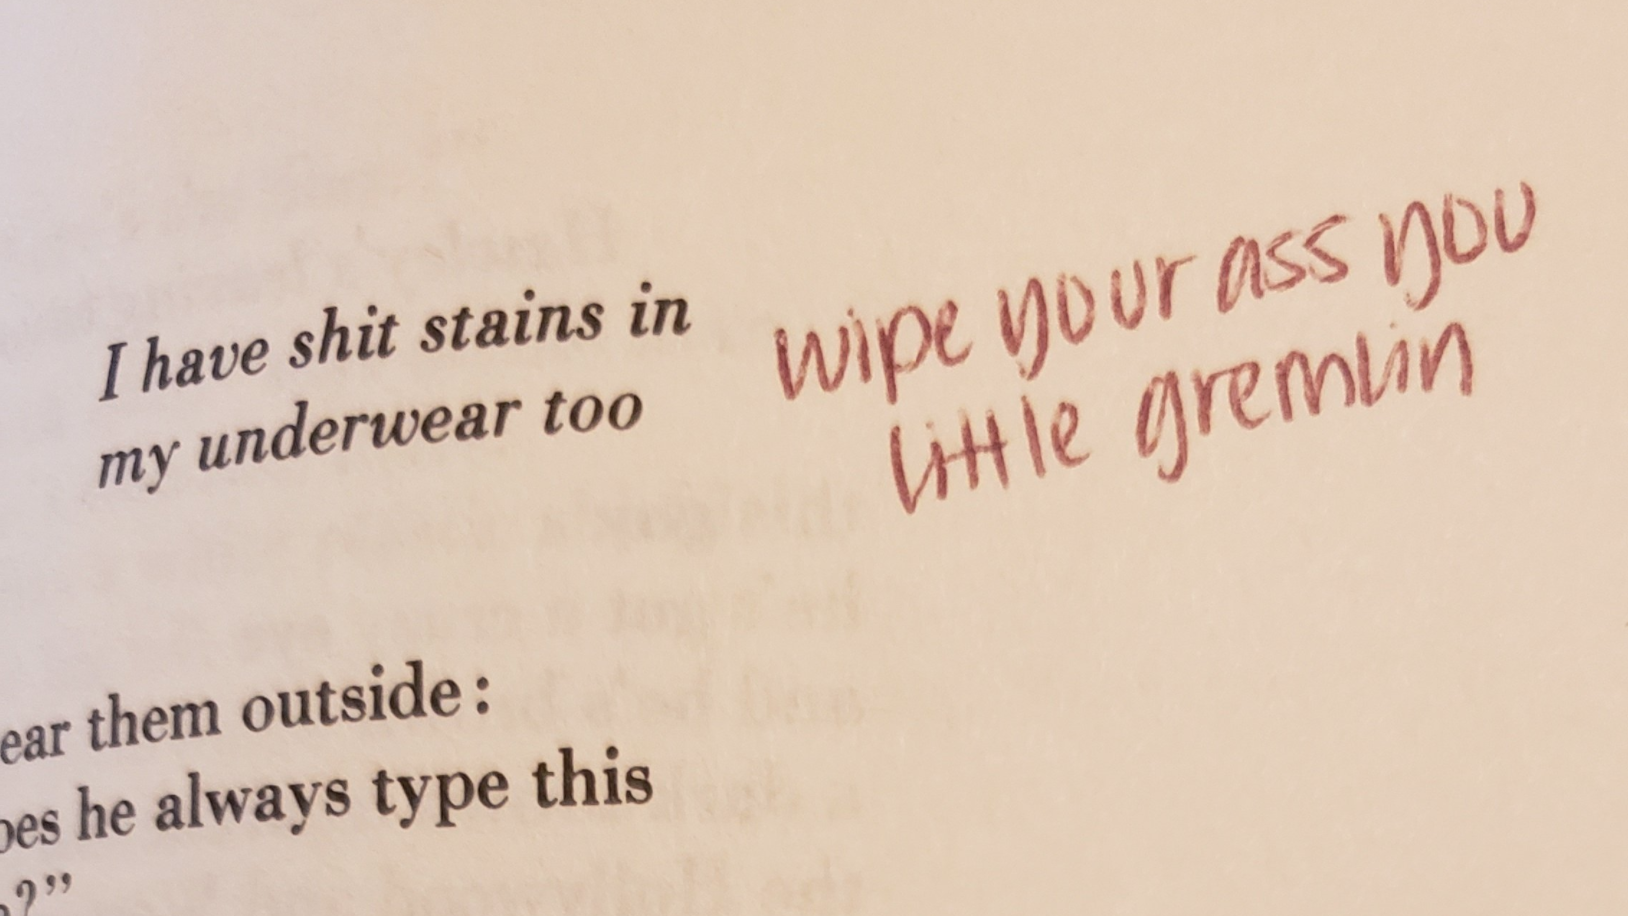 I have shit stains in
my underwear too
wipe your ass you
little gremlin
ear them outside:
oes he always type this
?”